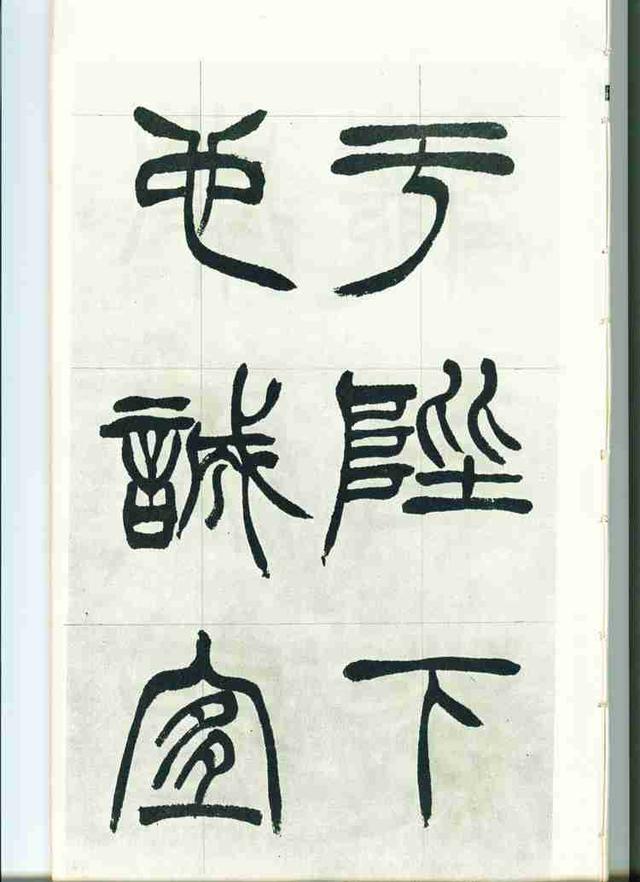 于陛下
也誠宜